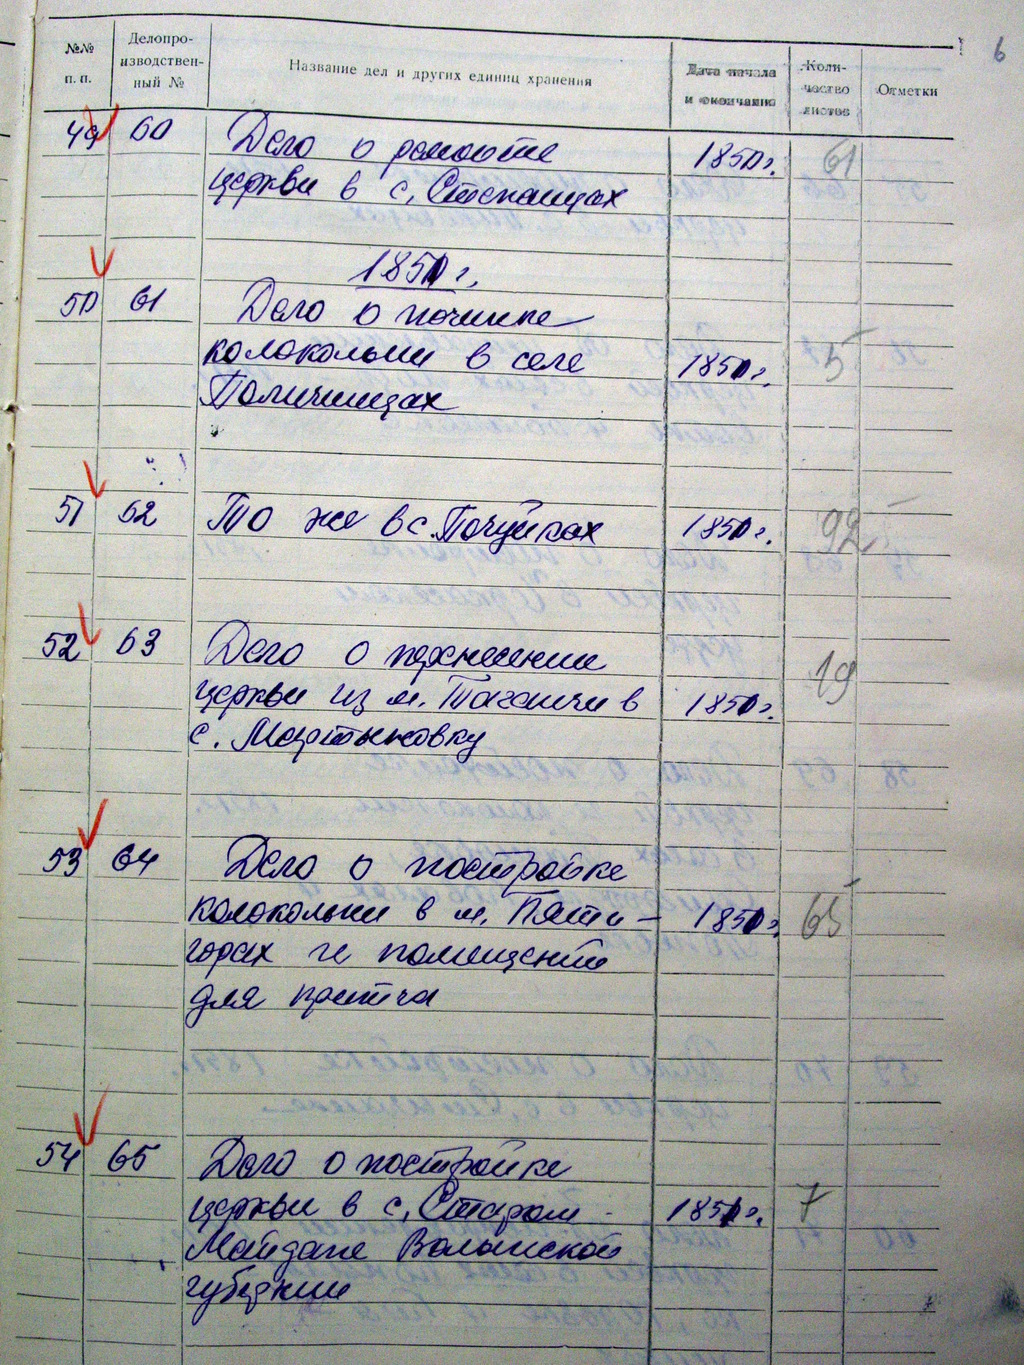 6
№№ п. п.
Делопро-
изводствен-
ный №
Название дел и других единиц хранения
Дата начала
и окончания
Коли-
чество
листов
Отметки
49 60 Дело о ремонте
церкви в с. Степанцах 1850 г. 61
1850 г.
50 61 Дело о починке
колокольни в селе 1850 г. 5
Поличинцах
51 62 То же в с. Почуйках 1850 г. 92
52 63 Дело о перенесении
церкви из м. Таганчи в 1850 г. 19
с. Мартыновку
53 64 Дело о постройке
колокольни в м. Пяти- 1850 г. 65
горах и помещений
для притча
54 65 Дело о постройке
церкви в с. Старом 1850 г. 7
Майдане Волынской
губернии